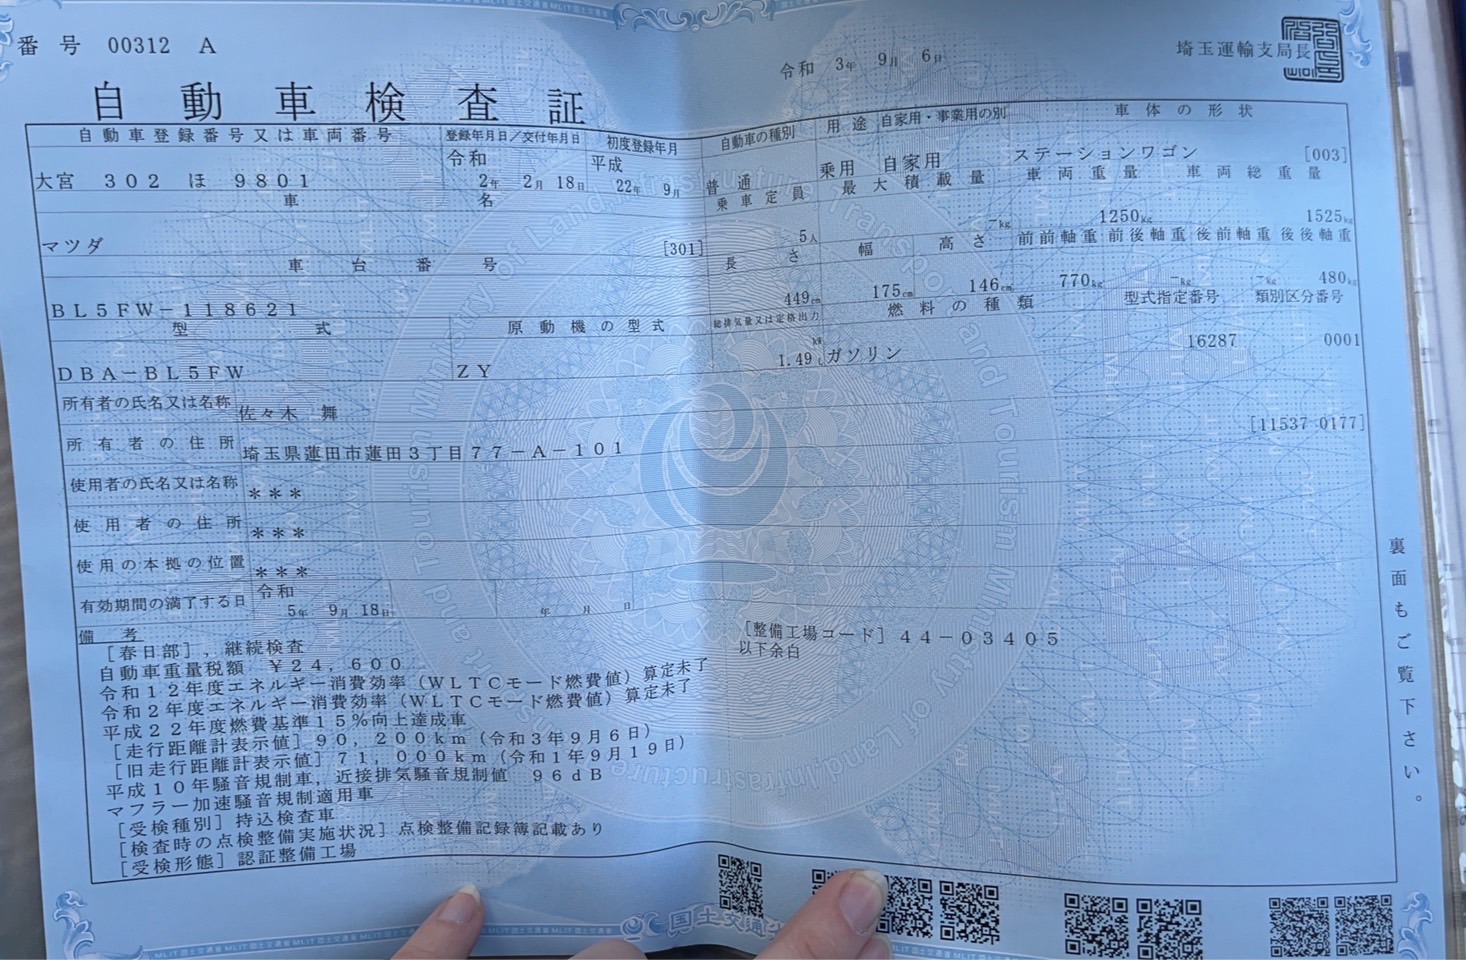 番号 00312 A
令和 3年 9月 6日
埼玉運輸支局長
自動車検査証
自動車登録番号又は車両番号 登録年月日/交付年月日 初度登録年月 自動車の種別 用途 自家用・事業用の別 車体の形状
大宮 302 ほ 9801 令和 2年 2月 18日 平成 22年 9月 普通 乗用 自家用 ステーションワゴン [003]
車名 乗車定員 最大積載量 車両重量 車両総重量
マツダ [301] 5人 -kg 1250kg 1525kg
車台番号 長さ 幅 高さ 前前軸重 前後軸重 後前軸重 後後軸重
BL5FW-118621 449cm 175cm 146cm 770kg -kg -kg 480kg
型式 原動機の型式 総排気量又は定格出力 燃料の種類 型式指定番号 類別区分番号
DBA-BL5FW ZY 1.49 kW L ガソリン 16287 0001
所有者の氏名又は名称 佐々木 舞
[11537 0177]
所有者の住所 埼玉県蓮田市蓮田3丁目77-A-101
使用者の氏名又は名称 ***
使用者の住所 ***
使用の本拠の位置 ***
有効期間の満了する日 令和 5年 9月 18日 年 月 日
備考
[春日部],継続検査
自動車重量税額 ¥24,600
令和12年度エネルギー消費効率(WLTCモード燃費値)算定未了
令和2年度エネルギー消費効率(WLTCモード燃費値)算定未了
平成22年度燃費基準15%向上達成車
[走行距離計表示値]90,200km(令和3年9月6日)
[旧走行距離計表示値]71,000km(令和1年9月19日)
平成10年騒音規制車,近接排気騒音規制値 96dB
マフラー加速騒音規制適用車
[受検種別]持込検査車
[検査時の点検整備実施状況]点検整備記録簿記載あり
[受検形態]認証整備工場
[整備工場コード]44-03405
以下余白
裏面もご覧下さい。
国土交通